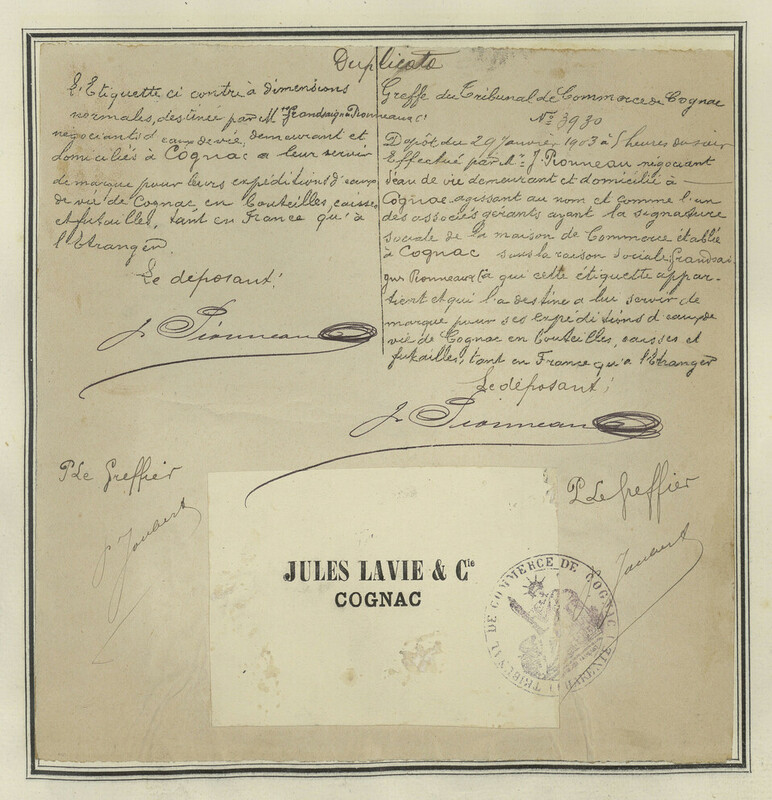 Duplicata
L'Etiquette ci contre à dimensions
normales, destinée par Mrs Grandsaigne Pionneau & Cie
négociants d'eaux de vie, demeurant et
domiciliés à Cognac a leur servir
de marque pour leurs expéditions d'eaux
de vie de Cognac en bouteilles, caisses
et futailles, tant en France qu'à
l'Etranger.
Le déposant:
J. Pionneau
Greffe du Tribunal de Commerce de Cognac
No 3930
Dépôt du 29 Janvier 1903 à 5 heures du soir
Effectué par Mr J. Pionneau négociant
d'eau de vie demeurant et domicilié à
Cognac agissant au nom et comme l'un
des associés gérants ayant la signature
sociale de la maison de Commerce établie
à Cognac sous la raison sociale Grandsai
gne Pionneau & Cie à qui cette étiquette appar-
tient et qui l'a destine a lui servir de
marque pour ses expéditions d'eaux de
vie de Cognac en bouteilles, caisses et
futailles, tant en France qu'à l'Etranger
Le déposant:
J. Pionneau
P. Le Greffier
Joubert
P. Le Greffier
Joubert
JULES LAVIE & Cie
COGNAC
TRIBUNAL DE COMMERCE DE COGNAC (CHARENTE)